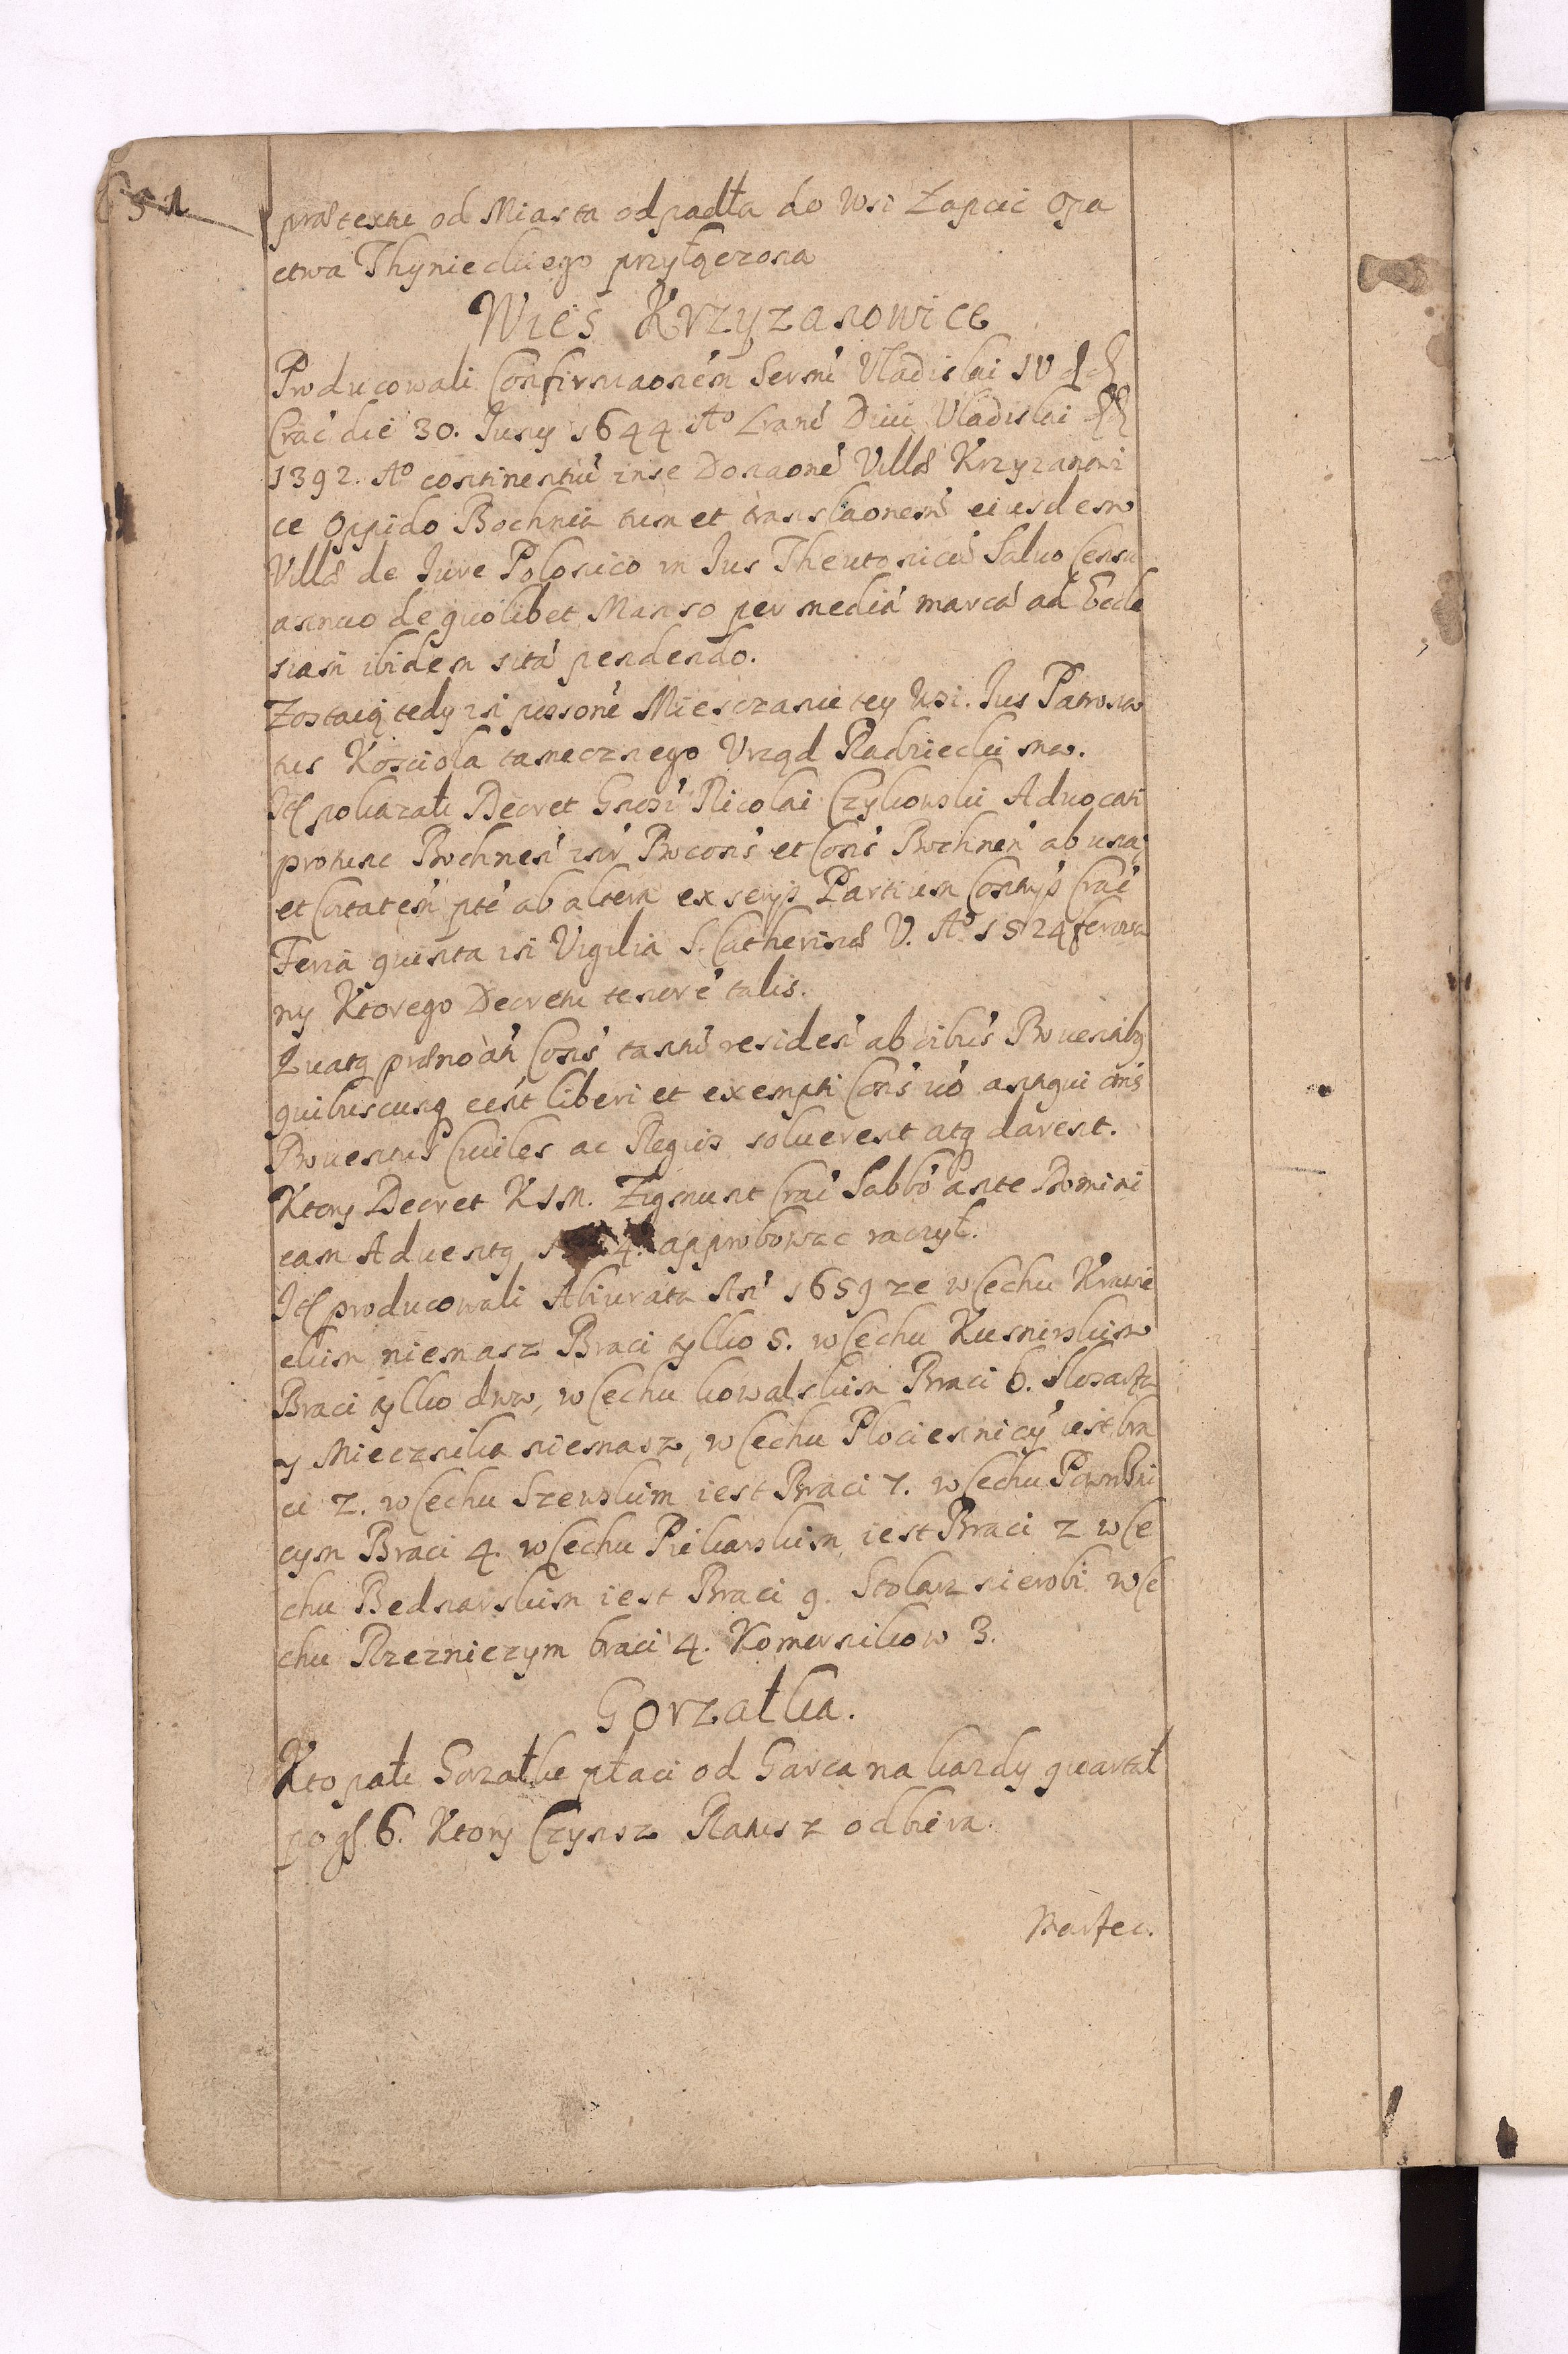 51
prætextu od Miasta odpadła do Wsi Łapcic Opa
ctwa Thynieckiego przyłączona
Wies Krzyzanowice
Producowali Confirmaonem Sermi Vladislai IV
Crac die 30. Juny 1644 Ao Lrarũ Divi Vladislai
1392. Ao continentiũ inse Donaone Villæ Krzyzanowi
ce Oppido Bochnia tum et translaonem eiusdem
Villæ de Jure Polonico in Jus Theutonicũ Salvo Censu
annuo de quolibet Manso per mediã marcã ad Eccle
siam ibidem sitã pendendo.
Zostaią tedy in possone Miesczanie tey Wsi. Jus Patrona
tus Kosciola tamecznego Urząd Radziecki ma.
It pokazali Decret Gnosi Nicolai Czykowski Advocati
protunc Bochnen inr Procons et Cons Bochnen ab una
et Cõitatem ptẽ ab altera ex scrip Partium Contrys Crac
Feria quinta in Vigilia S. Catherinæ V. Ao 1524 ferowa
ny Ktorego Decretu tenore talis.
Quatq prænoãti Cons tantũ residen ab oibus Provenibq
quibuscunq eent liberi et exempti Cons vo antiqui oms
Proventus Civiles ac Regios solverent atq darent.
Ktory Decret K J M. Zigmunt Crac Sabbo ante Domini
cam Adventq approbowac raczył.
It producowali Abiurata Ani 1659 ze w Cechu Krawie
ckim niemasz Braci tylko 5. w Cechu Kusnirskim
Braci tylko dwu, w Cechu kowalskim Braci 6. Slosarza
y Miecznika niemasz, w Cechu Plociennicy iest bra
ci 2. w Cechu Szewskim iest Braci 7. w Cechu Powrozni
cym Braci 4. w Cechu Piekarskim iest Braci 2 w Ce
chu Bednarskim iest Braci 9. Stolarz nierobi. w Ce
chu Rzezniczym braci 4. Komornikow 3.
Gorzałka.
Kto pali Gorzałke płaci od Garca na kazdy quartał
po gr 6. Ktory Czynsz Ratusz odbiera.